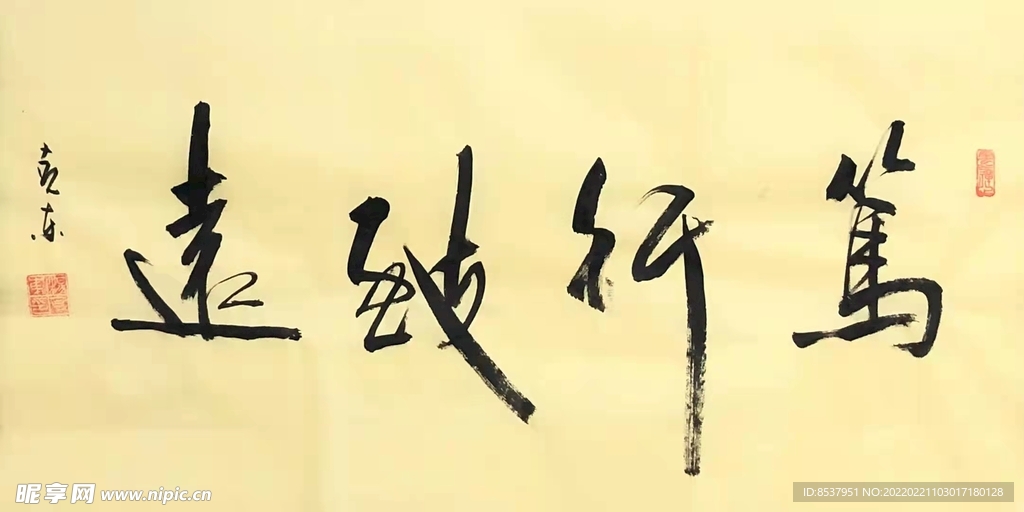 篤行致遠
昵享网 www.nipic.cn
ID:8537951 NO:20220221103017180128